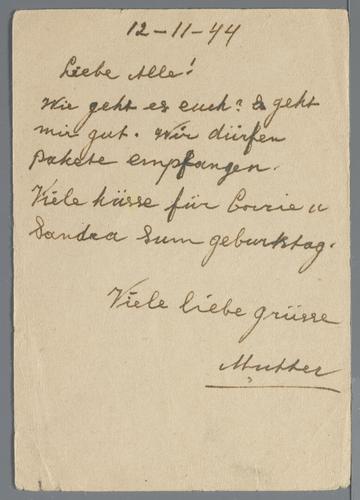 12-11-44
Liebe Alle!
Wie geht es euch? Es geht
mir gut. Wir dürfen
pakete empfangen.
Viele küsse für Corrie u
Sandra Zum geburtstag.
Viele liebe grüsse
Mutter